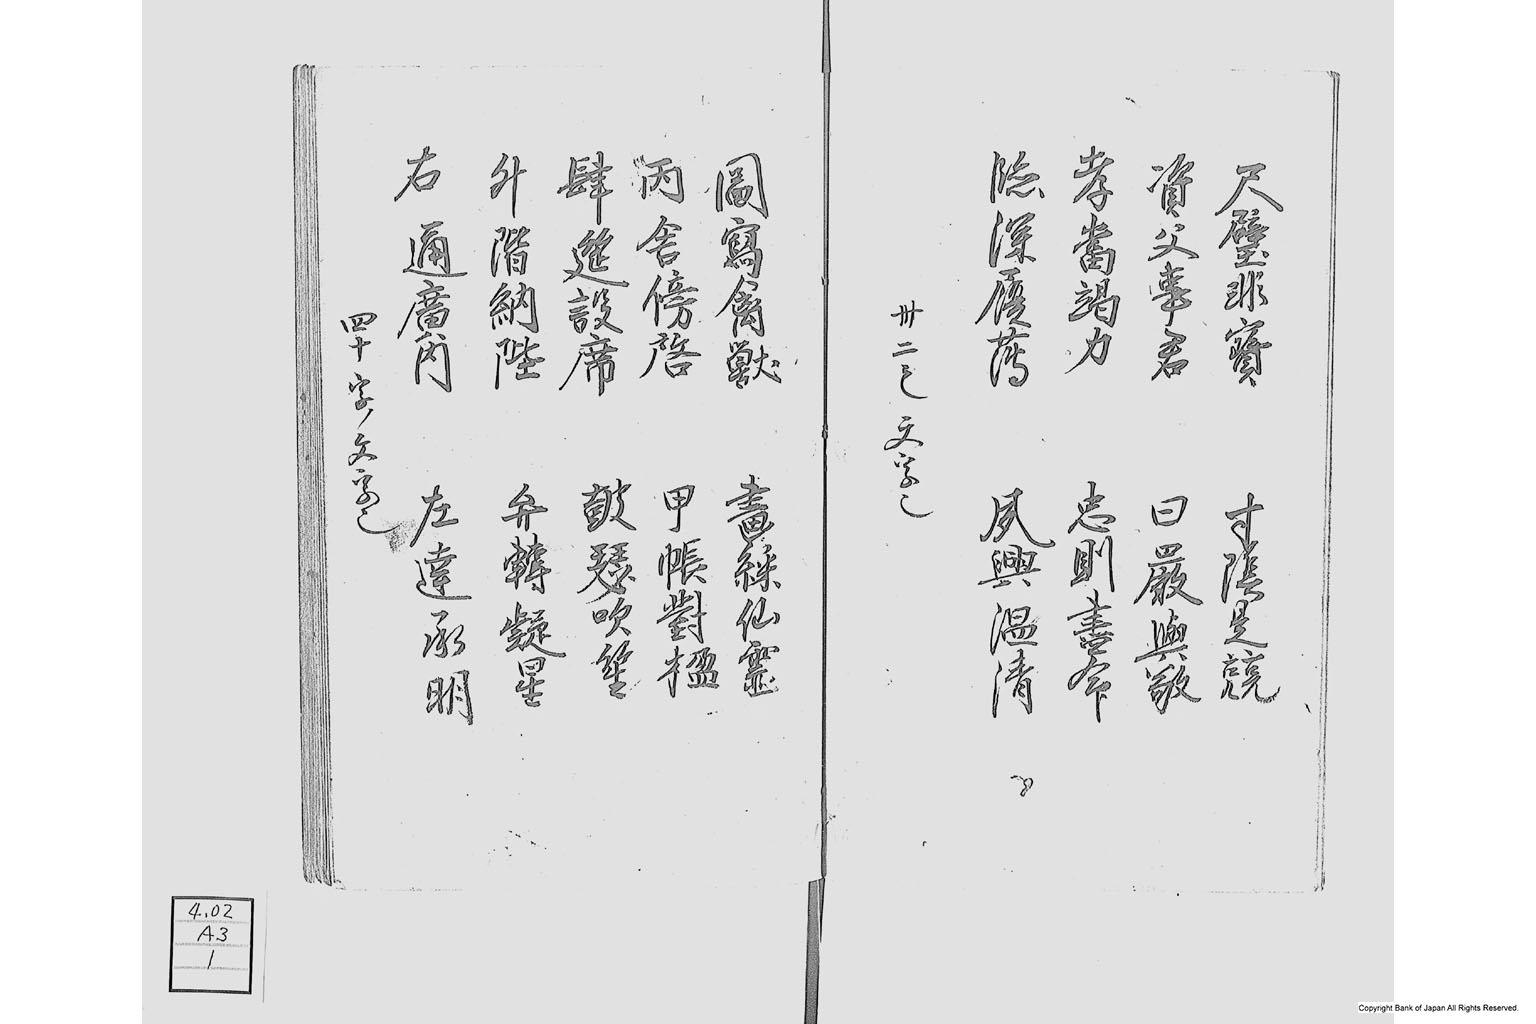 尺璧非寶 寸陰是競
資父事君 曰嚴與敬
孝當竭力 忠則盡命
臨深履薄 夙興温凊
卅二 文字
圖寫禽獸 畫綵仙靈
丙舎傍啓 甲帳對楹
肆筵設席 皷瑟吹笙
升階納陛 弁轉疑星
右通廣内 左達承明
四十字文字
4.02
A3
1
Copyright Bank of Japan All Rights Reserved.